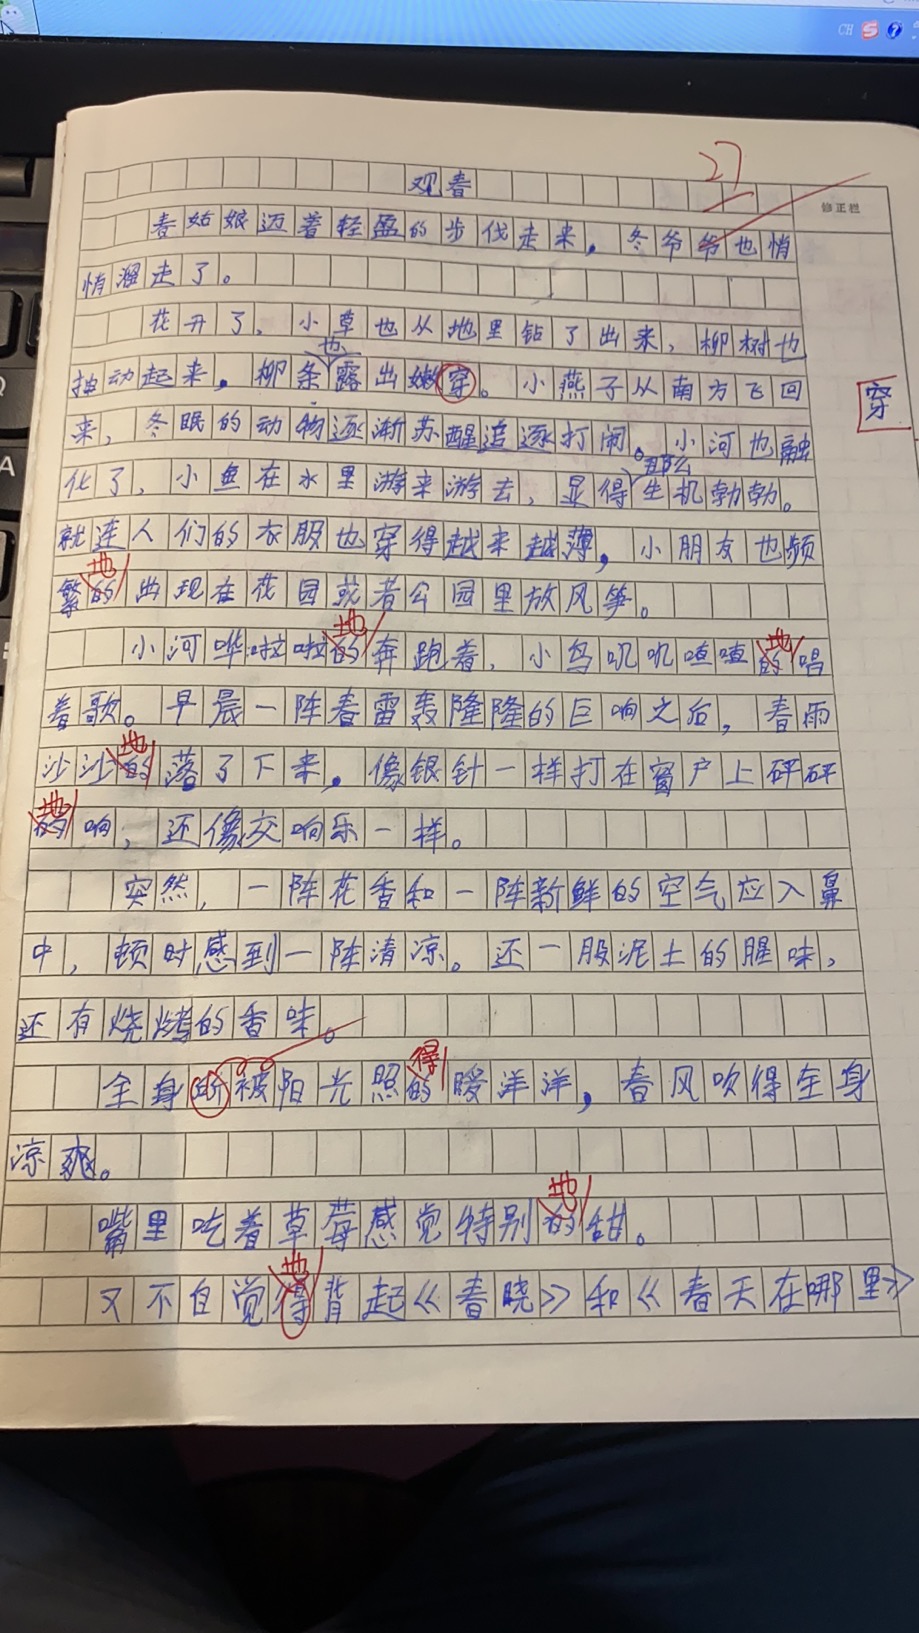 CH
27
观春
修正栏
春姑娘迈着轻盈的步伐走来，冬爷爷也悄
悄溜走了。
花开了，小草也从地里钻了出来，柳树也
也
抽动起来，柳条露出嫩穿。小燕子从南方飞回
穿
来，冬眠的动物逐渐苏醒追逐打闹。小河也融
那么
化了，小鱼在水里游来游去，显得生机勃勃。
就连人们的衣服也穿得越来越薄，小朋友也频
地
繁的出现在花园或者公园里放风筝。
地
小河哗啦啦的奔跑着，小鸟叽叽喳喳的唱
地
着歌。早晨一阵春雷轰隆隆的巨响之后，春雨
地
沙沙的落了下来，像银针一样打在窗户上砰砰
地
的响，还像交响乐一样。
突然，一阵花香和一阵新鲜的空气应入鼻
中，顿时感到一阵清凉。还一股泥土的腥味，
还有烧烤的香味。
得
全身被阳光照的暖洋洋，春风吹得全身
凉爽。
地
嘴里吃着草莓感觉特别的甜。
地
又不自觉得背起《春晓》和《春天在哪里》